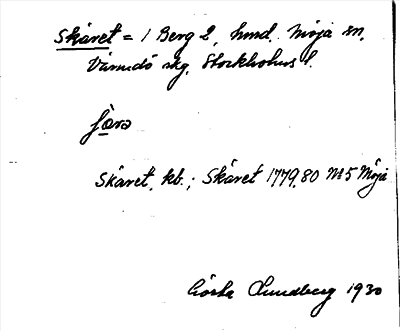 Skäret = 1 Berg 2, hmd. Möja sn,
Värmdö skg, Stockholms l.
Skäret, kb.; Skäret 1779.80 No 5 Möja
Gösta Lundberg 1930